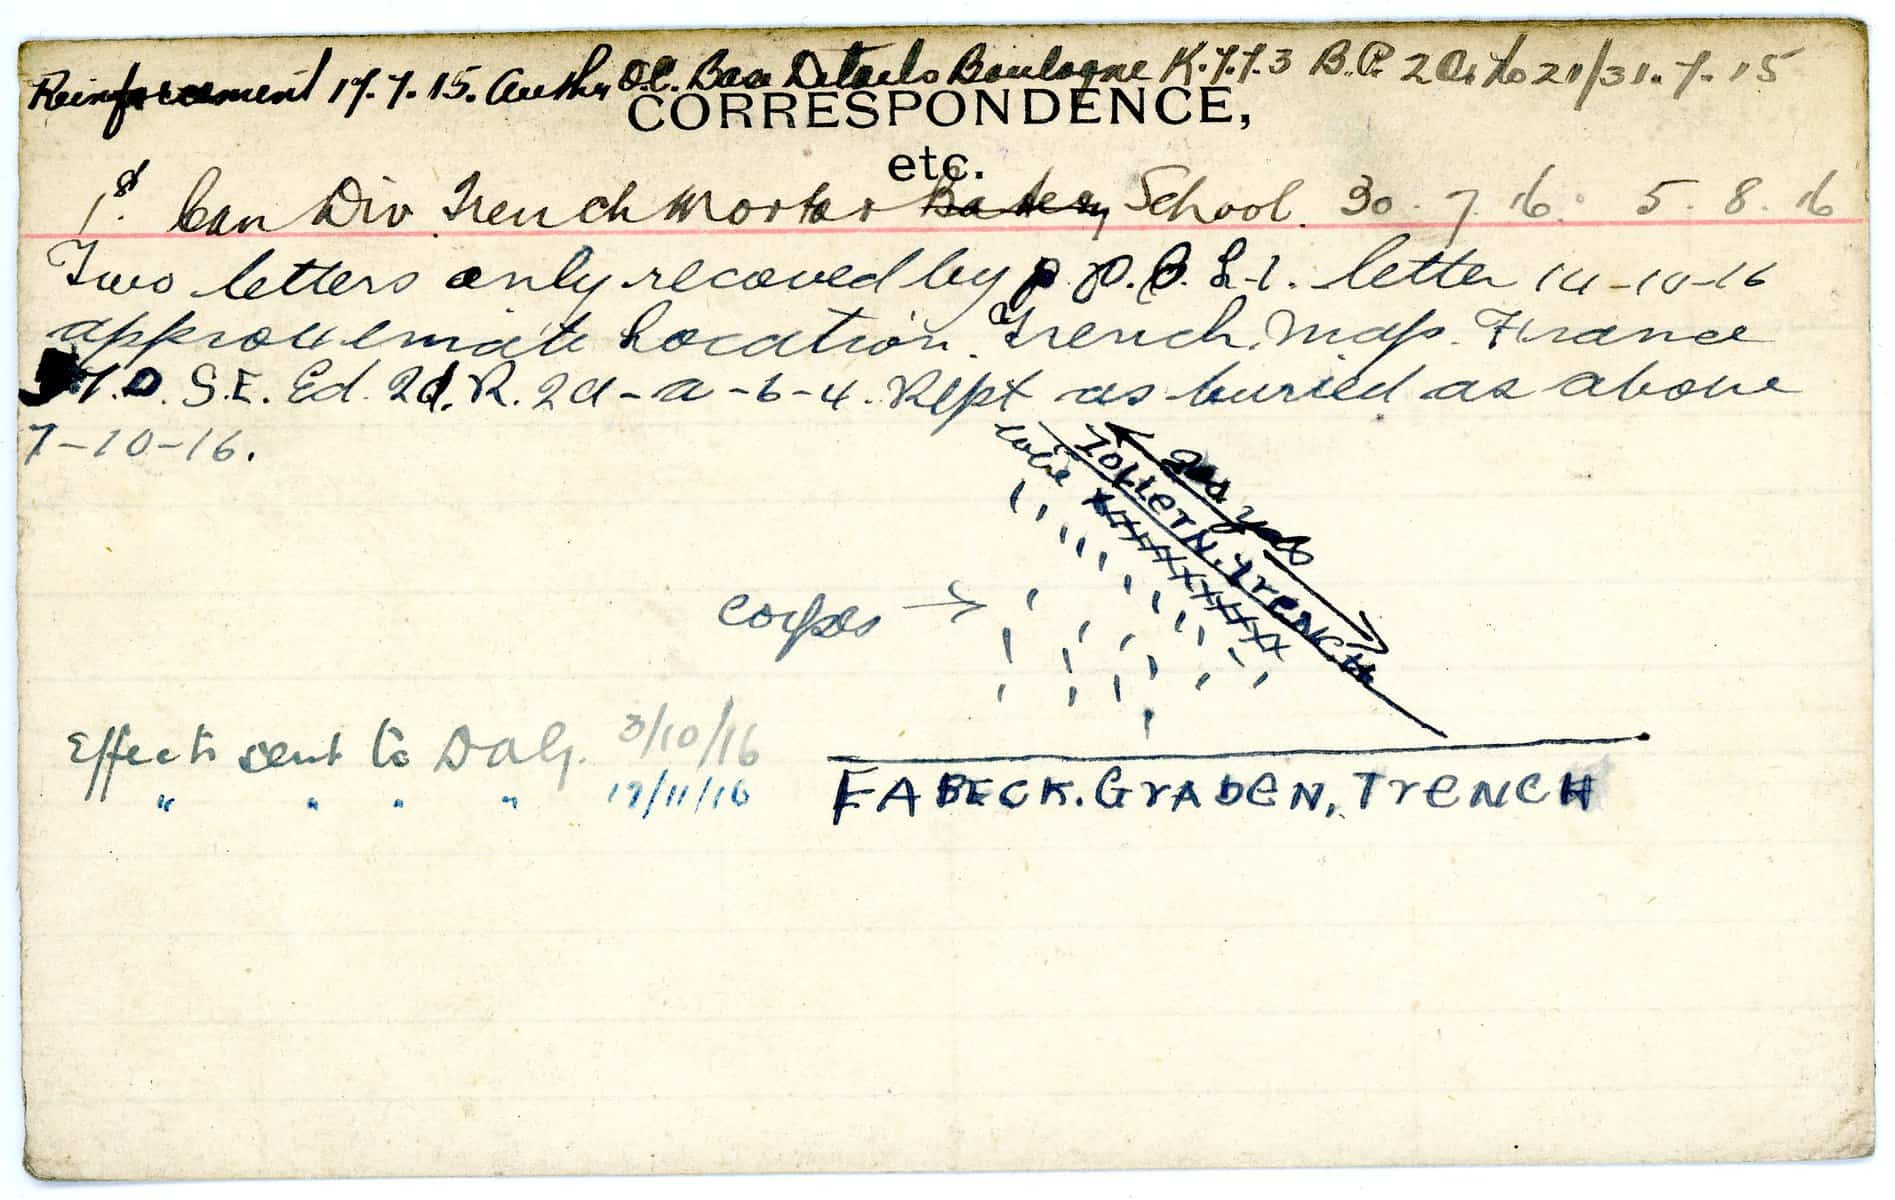 Reinforcement 17.7.15. Authy O.C. Base Details Boulogne K.7.7.3 B.P. 2 O. to 21/31.7.15
CORRESPONDENCE,
etc.
1st Can Div Trench Mortar Battery School. 30.7.16. 5.8.16
Two letters only receved by P.P.C.L.I. letter 14-10-16
approxemiate Location. Trench. Map. France
S.E. Ed. 2d. R. 2d-a-6-4. Rept as buried as above
7-10-16.
wire
TOLLERN. TrENCH
corpes
Effects sent to DAG. 3/10/16
" " " " 17/11/16
FABECK. GrAbEN, TrENCH